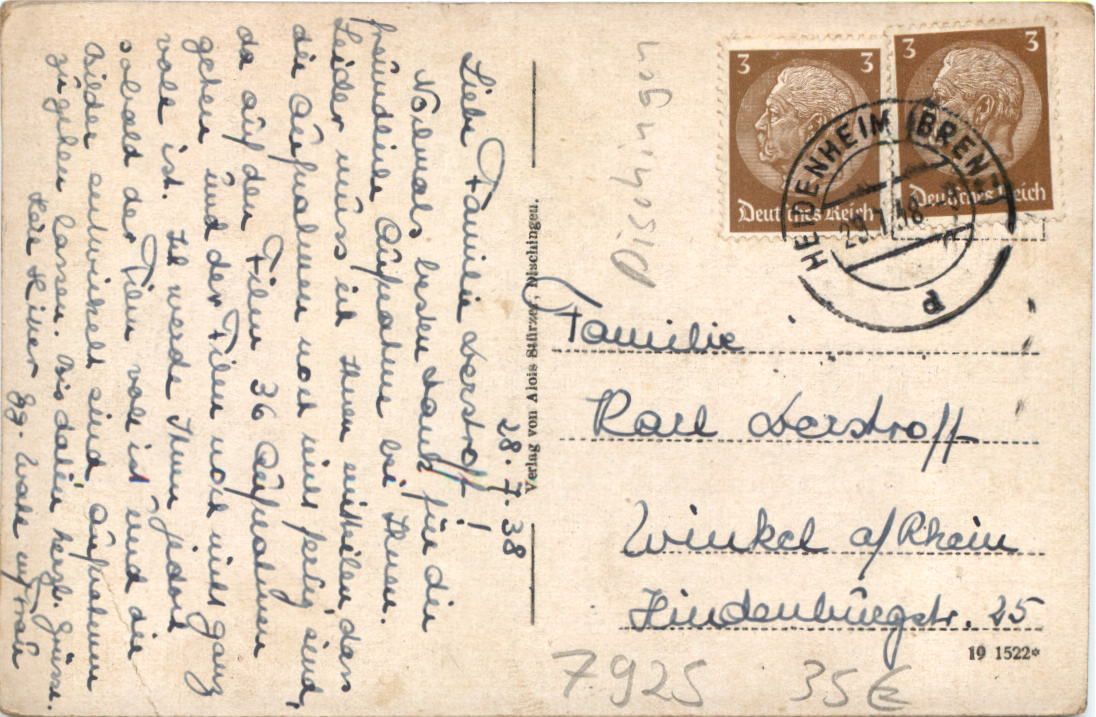 28. 7. 38
Liebe Familie Derstroff!
Nochmals besten Dank für die
freundliche Aufnahme bei Ihnen.
Leider muss ich Ihnen mitteilen dass
die Aufnahmen noch nicht fertig sind,
da auf den Film 36 Aufnahmen
gehen und der Film noch nicht ganz
voll ist. Ich werde Ihnen jedoch
sobald der Film voll ist und die
Bilder entwickelt sind Aufnahmen
zugehen lassen. Bis dahin herzl. Grüsse
Heil Hitler Gg. u. Frau
Verlag von Alois Stürzer, Dischingen.
Dischingen
3 3
Deutsches Reich
3 3
Deutsches Reich
HEIDENHEIM (BRENZ)
29.7.38
d
Familie
Karl Derstroff
Winkel a/Rhein
Hindenburgstr. 25
19 1522*
7925 35 €